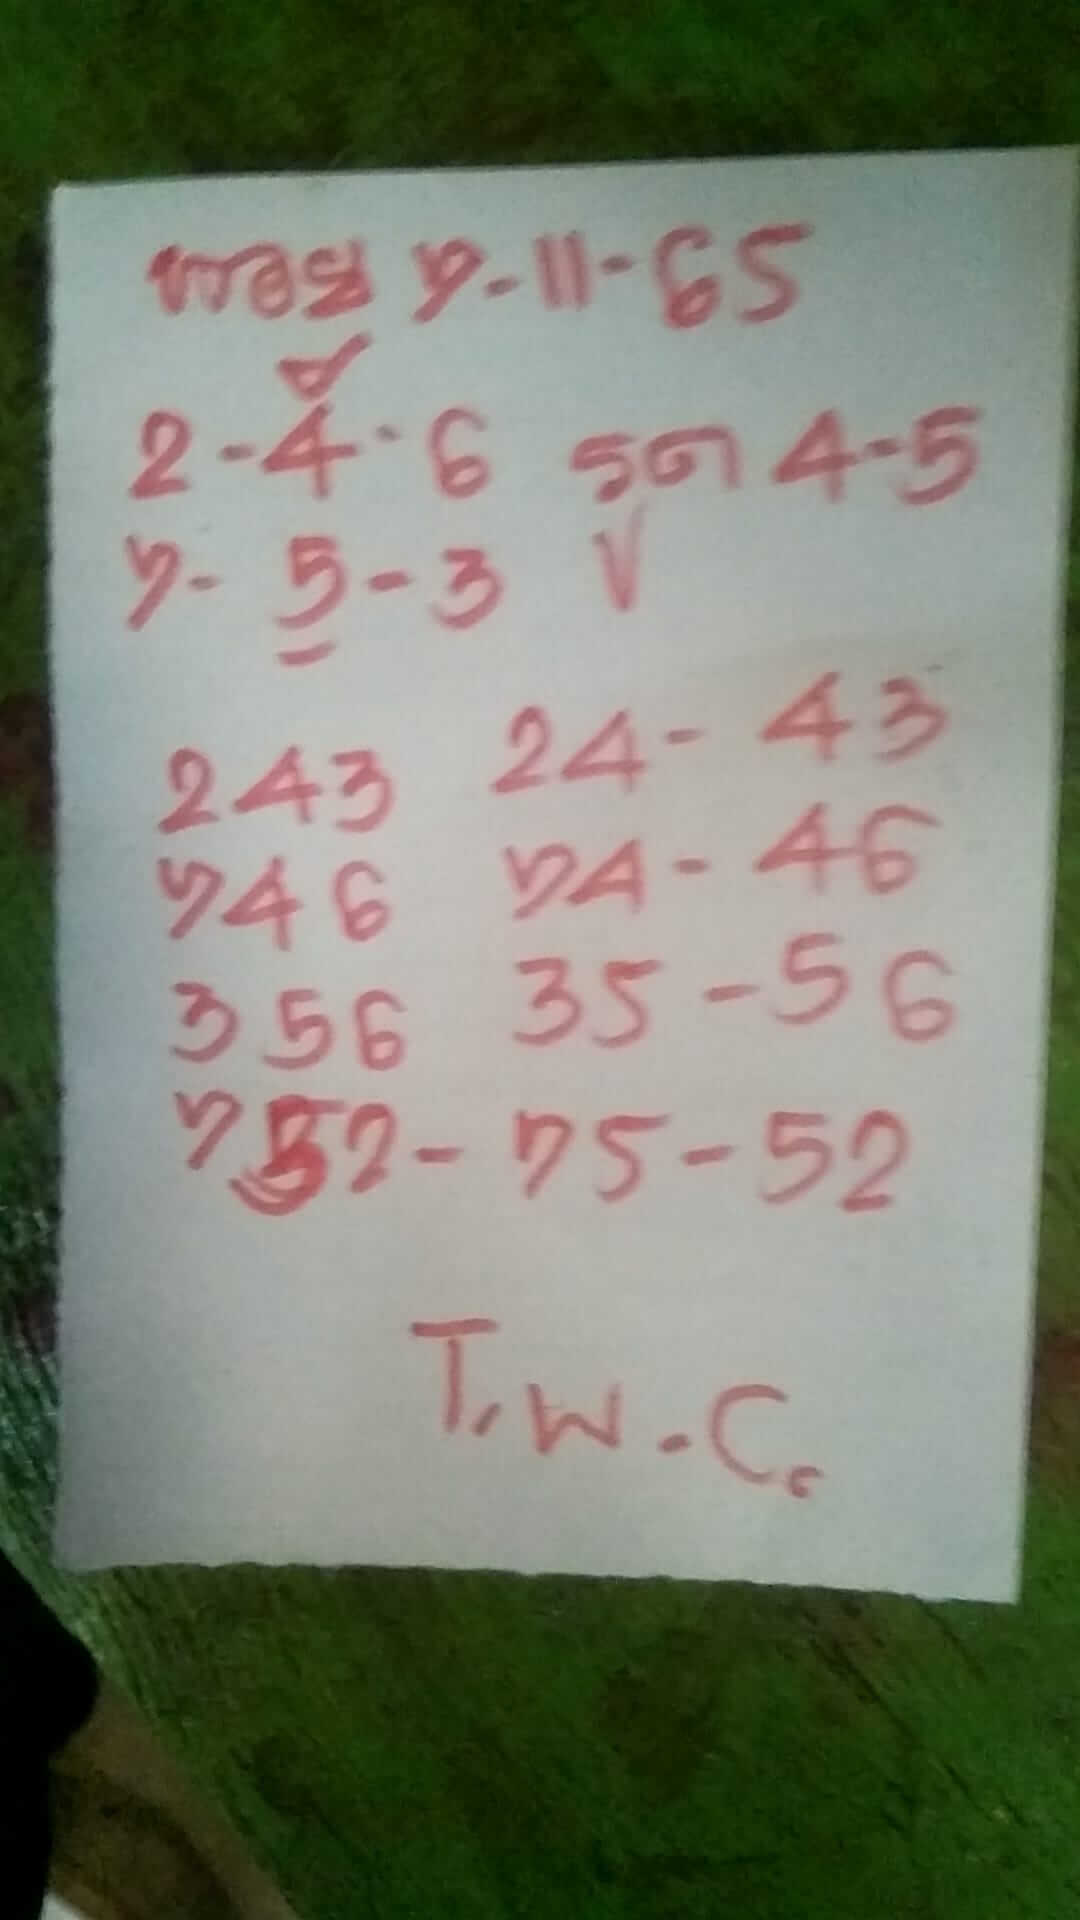 ฮานอย 7-11-65
2-4-6 รูด 4-5
7-5-3
243 24-43
746 74-46
356 35-56
752-75-52
T.W.C.